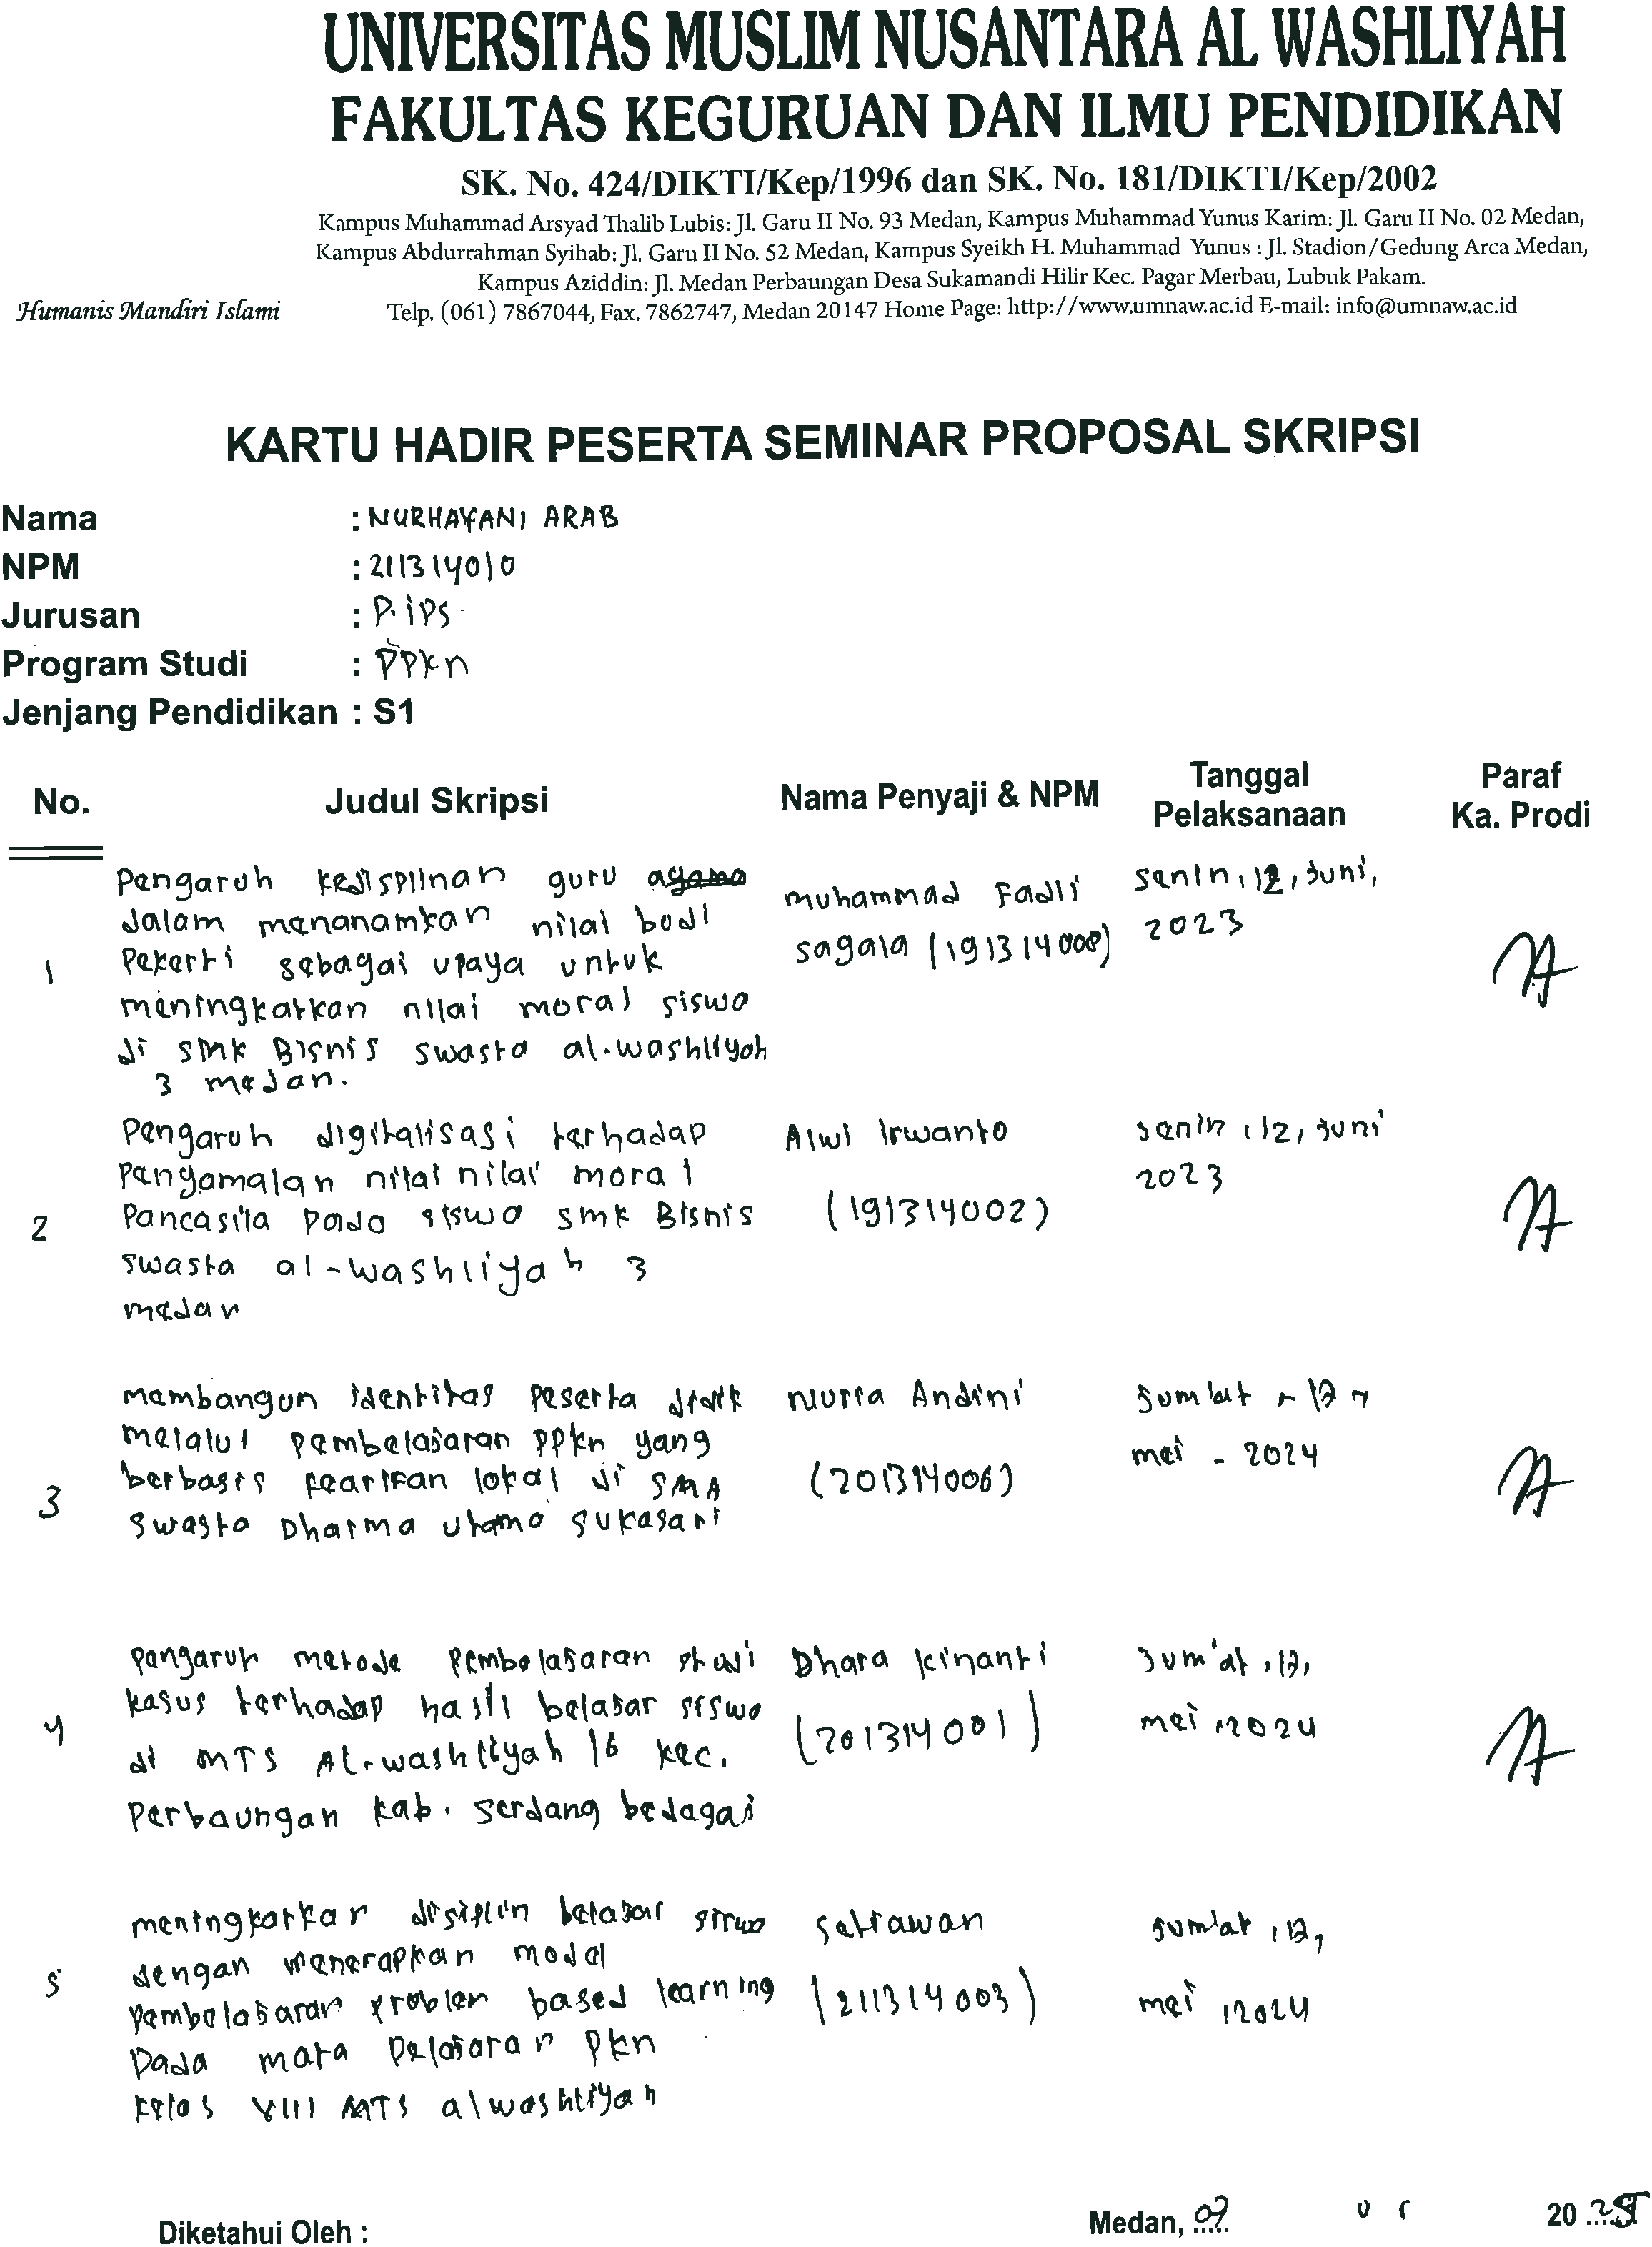 UNIVERSITAS MUSLIM NUSANTARA AL WASHLIYAH
FAKULTAS KEGURUAN DAN ILMU PENDIDIKAN
SK. No. 424/DIKTI/Kep/1996 dan SK. No. 181/DIKTI/Kep/2002
Kampus Muhammad Arsyad Thalib Lubis: Jl. Garu II No. 93 Medan, Kampus Muhammad Yunus Karim: Jl. Garu II No. 02 Medan,
Kampus Abdurrahman Syihab: Jl. Garu II No. 52 Medan, Kampus Syeikh H. Muhammad Yunus : Jl. Stadion/Gedung Arca Medan,
Kampus Aziddin: Jl. Medan Perbaungan Desa Sukamandi Hilir Kec. Pagar Merbau, Lubuk Pakam.
Humanis Mandiri Islami
Telp. (061) 7867044, Fax. 7862747, Medan 20147 Home Page: http://www.umnaw.ac.id E-mail: info@umnaw.ac.id
KARTU HADIR PESERTA SEMINAR PROPOSAL SKRIPSI
Nama : NURHAYANI ARAB
NPM : 211314010
Jurusan : P. iPS
Program Studi : PPkn
Jenjang Pendidikan : S1
No. Judul Skripsi Nama Penyaji & NPM Tanggal Pelaksanaan Paraf Ka. Prodi
1
Pengaruh kedisplinan guru agama
dalam menanamkan nilai budi
Pekerti sebagai upaya untuk
meningkatkan nilai moral siswa
di SMK Bisnis swasta al-washliyah
3 medan.
muhammad Fadli
sagala (191314008)
senin, 12, juni,
2023
2
Pengaruh digitalisasi terhadap
Pengamalan nilai nilai moral
Pancasila pada siswa smk Bisnis
swasta al-washliyah 3
medan
Alwi irwanto
(191314002)
senin, 12, juni
2023
3
membangun identitas peserta didik
melalui pembelajaran ppkn yang
berbasis kearifan lokal di SMA
swasta Dharma utama sukasari
nurra Andini
(201314006)
Jum'at
mei - 2024
4
pengaruh metode pembelajaran studi
kasus terhadap hasil belajar siswa
di MTS Al-washliyah 16 kec.
Perbaungan kab. serdang bedagai
Dhara kinanti
(201314001)
Jum'at, 17,
mei, 2024
5
meningkatkan disiplin belajar siswa
dengan menerapkan model
pembelajaran problem based learning
pada mata pelajaran pkn
kelas VIII MTS alwashliyah
setiawan
(211314003)
Jum'at, 17,
mei, 2024
Diketahui Oleh :
Medan, 07 20 25